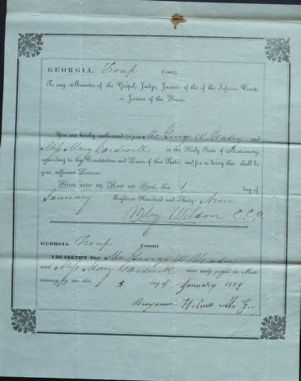 GEORGIA, Troup County.
To any Minister of the Gospel, Judge, Justice of the of the Inferior Court,
or Justice of the Peace.
You are hereby authorized to join Mr George W and
Miss Mary in the Holy State of Matrimony,
according to the Constitution and Laws of this State; and for so doing this shall be
your sufficient License.
Given under my Hand and Seal, this 1 day of
January Eighteen Hundred and Thirty Nine
Wiley Wilson C.C.O.
GEORGIA, Troup County
I DO CERTIFY, that Mr George W
and Miss Mary were duly joined in Matri-
mony by me this 3 day of January 1839
Benjamin M. G.